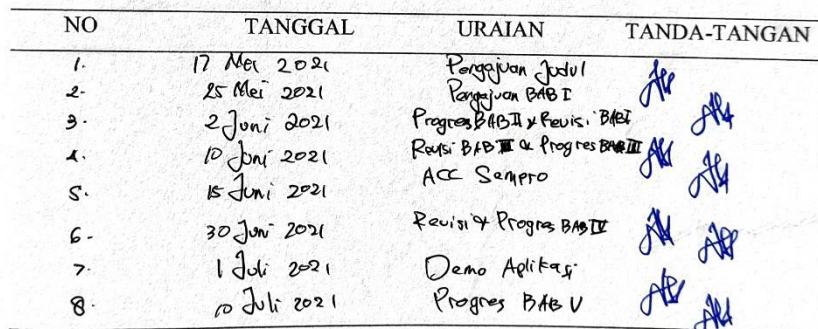 NO TANGGAL URAIAN TANDA-TANGAN
1. 17 Mei 2021 Pengajuan Judul
2. 25 Mei 2021 Pengajuan BAB I
3. 2 Juni 2021 Progres BAB II & Revisi BAB I
4. 10 Juni 2021 Revisi BAB II & Progres BAB III
5. 15 Juni 2021 ACC Sempro
6. 30 Juni 2021 Revisi & Progres BAB IV
7. 1 Juli 2021 Demo Aplikasi
8. 10 Juli 2021 Progres BAB V